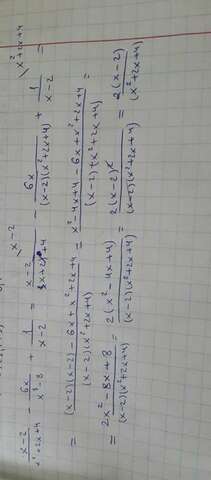 \x-2 \x²+2x+4
x-2/x²+2x+4 - 6x/x³-8 + 1/x-2 = x-2/x²+2x+4 - 6x/(x-2)(x²+2x+4) + 1/x-2 =
= (x-2)(x-2)-6x+x²+2x+4/(x-2)(x²+2x+4) = x²-4x+4-6x+x²+2x+4/(x-2)(x²+2x+4) =
= 2x²-8x+8/(x-2)(x²+2x+4) = 2(x²-4x+4)/(x-2)(x²+2x+4) 2(x-2)²/(x-2)(x²+2x+4) = 2(x-2)/(x²+2x+4)